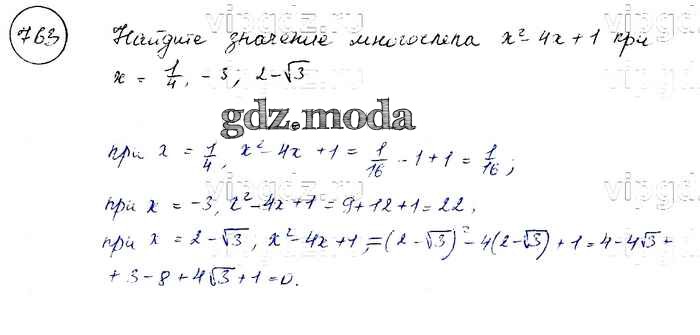 763 Найдите значение многочлена x² - 4x + 1 при
x = 1/4, -3; 2-√3
gdz.moda
при x = 1/4, x² - 4x + 1 = 1/16 - 1 + 1 = 1/16;
при x = -3, x² - 4x + 1 = 9 + 12 + 1 = 22,
при x = 2 - √3, x² - 4x + 1, = (2 - √3)² - 4(2 - √3) + 1 = 4 - 4√3 +
+ 3 - 8 + 4√3 + 1 = 0.